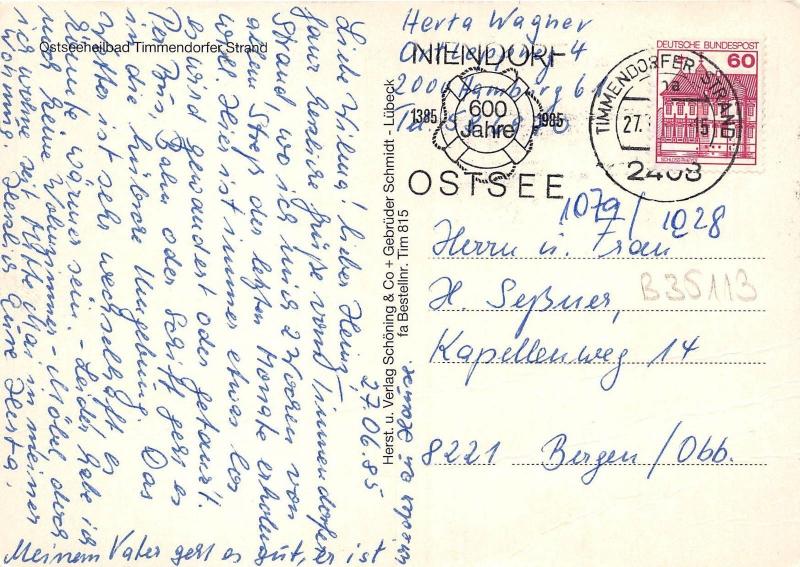 Ostseeheilbad Timmendorfer Strand
27.06.85
Liebe Wilma! Lieber Heinz!
Ganz herzliche Grüße vom Timmendorfer
Strand, wo ich mich 2 Wochen von
allem Streß der letzten Monate erholen
will. Hier ist immer etwas los
es wird gewandert oder getanzt.
Per Bus, Bahn oder Schiff geht es
in die nähere Umgebung. Das
Wetter ist sehr wechselhaft, es
könnte wärmer sein. - Leider habe ich
noch keine Wohnzimmer-Möbel, doch
ich wohne seit Mitte Mai in meiner
Wohnung. Herzlich Eure Herta.
Meinem Vater geht es gut, er ist
wieder zu Hause
Herst. u. Verlag Schöning & Co + Gebrüder Schmidt - Lübeck
fa Bestellnr. Tim 815
Herta Wagner
4
2000 Hamburg 61
NIENDORF
1385 600 Jahre 1985
OSTSEE
TIMMENDORFER STRAND
27.
2408
DEUTSCHE BUNDESPOST
60
1079/1028
B35113
Herrn u. Frau
H. Seßner,
Kapellenweg 14
8221 Bergen/Obb.